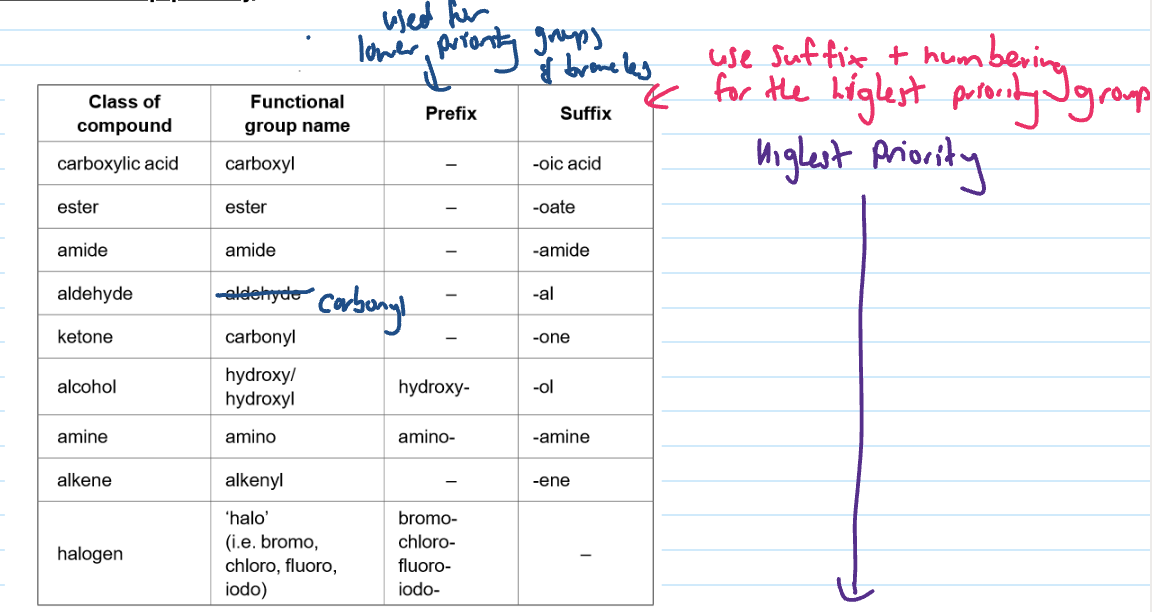 used for
lower priority groups
& branches
use suffix + numbering
for the highest priority group
Highest Priority
Class of compound	Functional group name	Prefix	Suffix
carboxylic acid	carboxyl	–	-oic acid
ester	ester	–	-oate
amide	amide	–	-amide
aldehyde	aldehyde carbonyl	–	-al
ketone	carbonyl	–	-one
alcohol	hydroxy/ hydroxyl	hydroxy-	-ol
amine	amino	amino-	-amine
alkene	alkenyl	–	-ene
halogen	‘halo’ (i.e. bromo, chloro, fluoro, iodo)	bromo- chloro- fluoro- iodo-	–